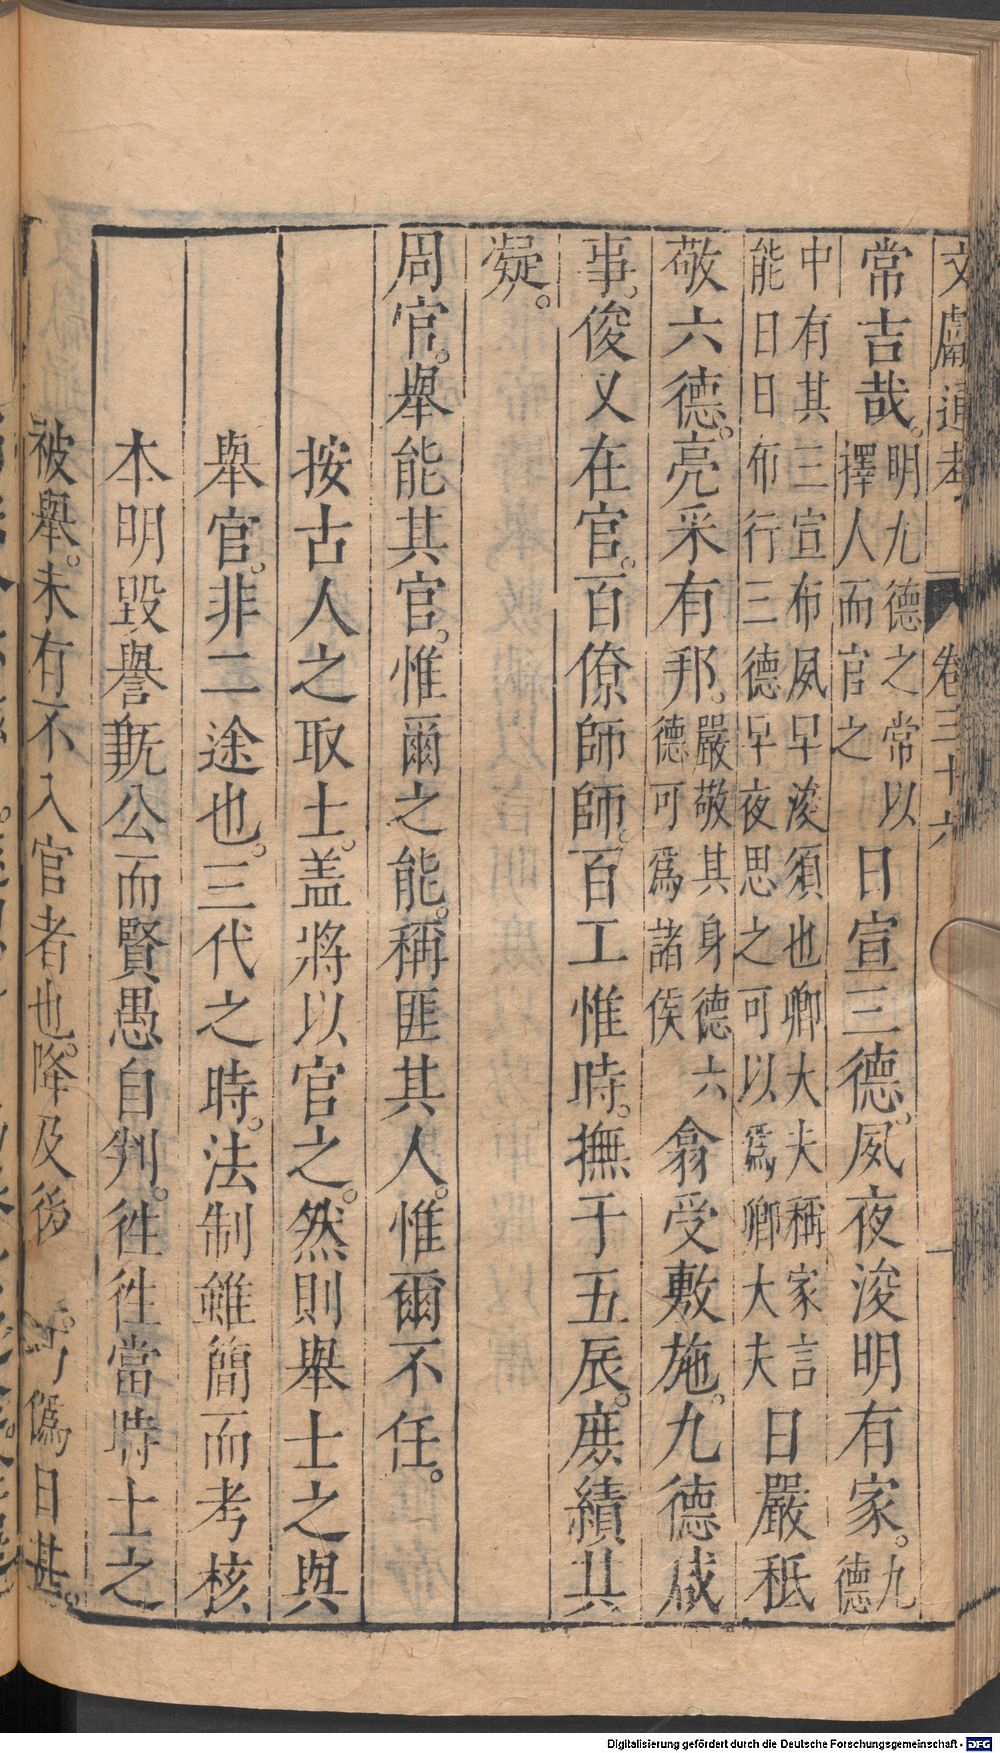 文獻通考 卷三十六 一
常吉哉。明九德之常以擇人而官之日宣三德。夙夜浚明有家。九德
中有其三宣布夙早浚須也卿大夫稱家言
能日日布行三德早夜思之可以爲卿大夫日嚴祗
敬六德。亮采有邦。嚴敬其身德六德可爲諸侯翕受敷施。九德咸
事。俊乂在官。百僚師師。百工惟時。撫于五辰。庶績其
凝。
周官。舉能其官。惟爾之能。稱匪其人。惟爾不任。
按古人之取士。盖將以官之。然則舉士之與
舉官。非二途也。三代之時。法制雖簡而考核
本明毀譽旣公而賢愚自判。徃徃當時士之
被舉。未有不入官者也。降及後 僞日甚。
Digitalisierung gefördert durch die Deutsche Forschungsgemeinschaft - DFG